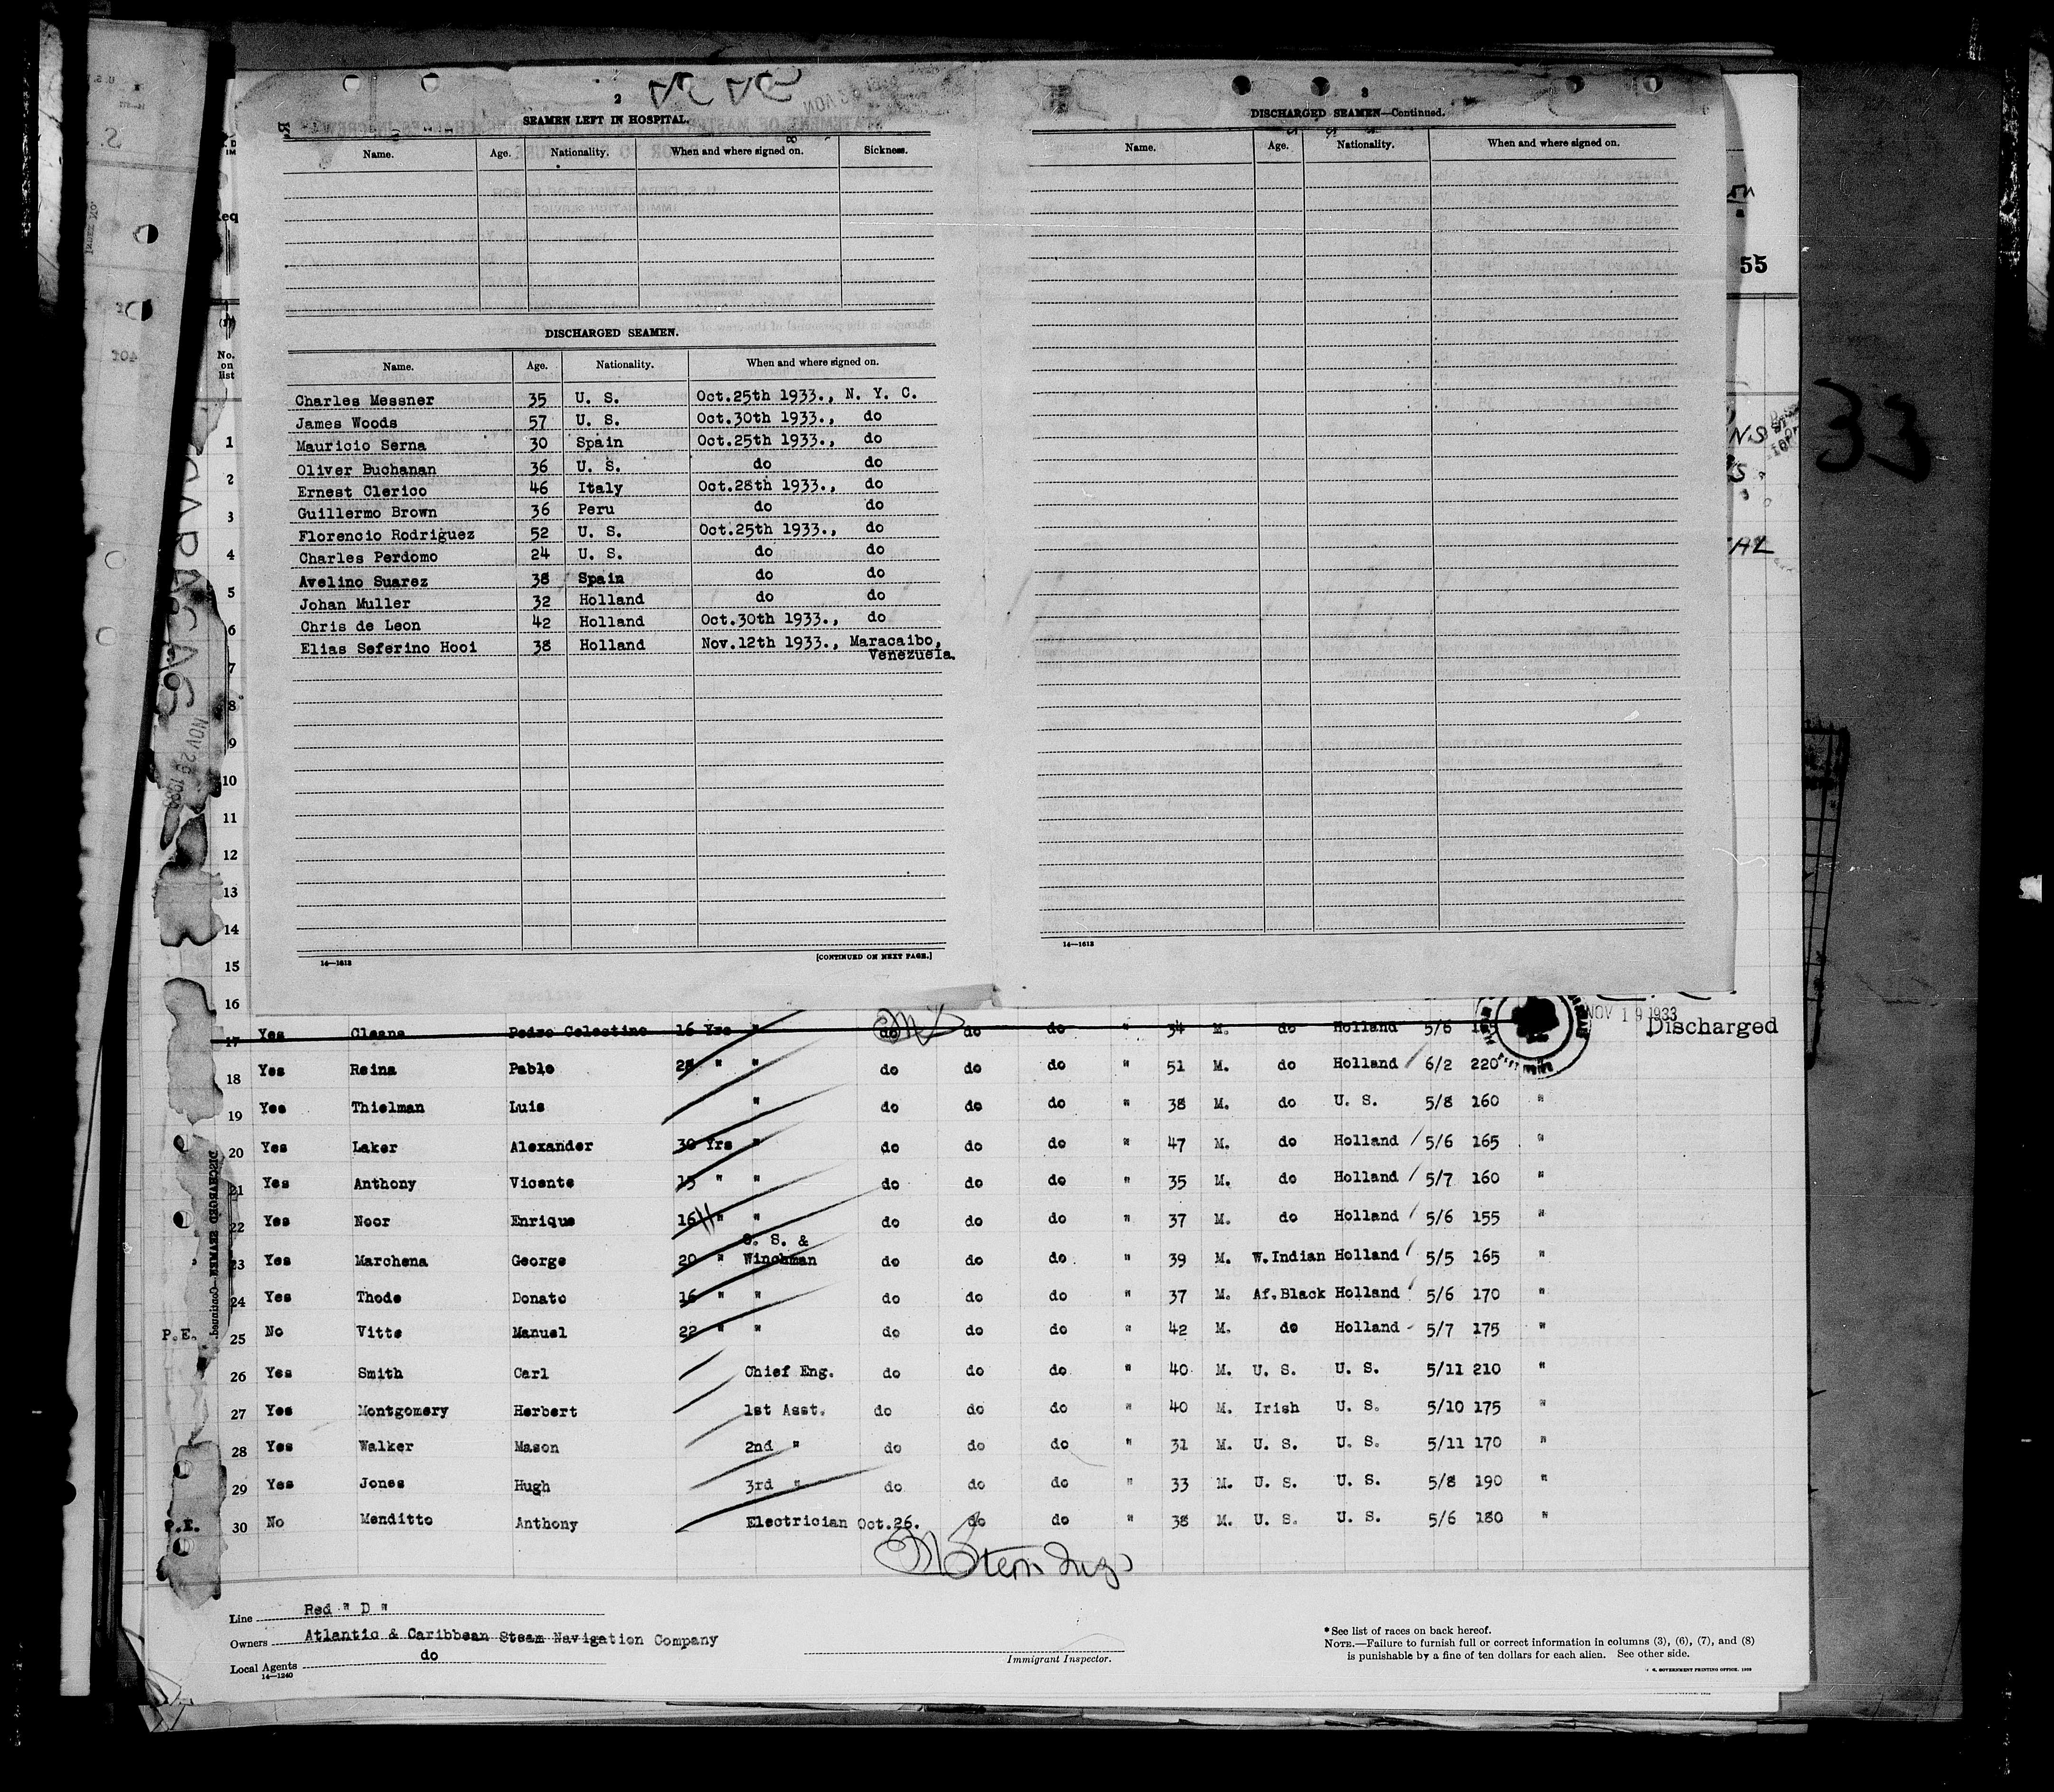 2
SEAMEN LEFT IN HOSPITAL.
Name. Age. Nationality. When and where signed on. Sickness.
DISCHARGED SEAMEN.
Name. Age. Nationality. When and where signed on.
Charles Messner 35 U. S. Oct.25th 1933., N. Y. C.
James Woods 57 U. S. Oct.30th 1933., do
Mauricio Serna 30 Spain Oct.25th 1933., do
Oliver Buchanan 36 U. S. do do
Ernest Clerico 46 Italy Oct.28th 1933., do
Guillermo Brown 36 Peru do do
Florencio Rodriguez 52 U. S. Oct.25th 1933., do
Charles Perdomo 24 U. S. do do
Avelino Suarez 38 Spain do do
Johan Muller 32 Holland do do
Chris de Leon 42 Holland Oct.30th 1933., do
Elias Seferino Hooi 38 Holland Nov.12th 1933., Maracaibo,
Venezuela.
14—1613 [CONTINUED ON NEXT PAGE.]
3
DISCHARGED SEAMEN—Continued.
Name. Age. Nationality. When and where signed on.
14—1613
55
33
No.
on
list
1
2
3
4
5
6
7
8
9
10
11
12
13
14
15
16
17 Yes Cleana Pedro Celestino 16 Yrs " do do do " 34 M. do Holland 5/6 165 NOV 19 1933 Discharged
18 Yes Reina Pablo 28 " " do do do " 51 M. do Holland 6/2 220
19 Yes Thielman Luis " do do do " 38 M. do U. S. 5/8 160 "
20 Yes Laker Alexander 30 Yrs " do do do " 47 M. do Holland 5/6 165 "
21 Yes Anthony Vicente 15 " " do do do " 35 M. do Holland 5/7 160 "
22 Yes Noor Enrique 16 " " do do do " 37 M. do Holland 5/6 155 "
O. S. &
23 Yes Marchena George 20 " Winchman do do do " 39 M. W.Indian Holland 5/5 165 "
24 Yes Thode Donato 16 " " do do do " 37 M. Af.Black Holland 5/6 170 "
P.E. 25 No Vitte Manuel 22 " " do do do " 42 M. do Holland 5/7 175 "
26 Yes Smith Carl Chief Eng. do do do " 40 M. U. S. U. S. 5/11 210 "
27 Yes Montgomery Herbert 1st Asst. do do do " 40 M. Irish U. S. 5/10 175 "
28 Yes Walker Mason 2nd " do do do " 31 M. U. S. U. S. 5/11 170 "
29 Yes Jones Hugh 3rd " do do do " 33 M. U. S. U. S. 5/8 190 "
P.E. 30 No Menditto Anthony Electrician Oct.26. do do " 38 M. U. S. U. S. 5/6 180 "
Line Red " D "
Owners Atlantic & Caribbean Steam Navigation Company
Local Agents do
14—1240
Immigrant Inspector.
*See list of races on back hereof.
NOTE.—Failure to furnish full or correct information in columns (3), (6), (7), and (8)
is punishable by a fine of ten dollars for each alien. See other side.